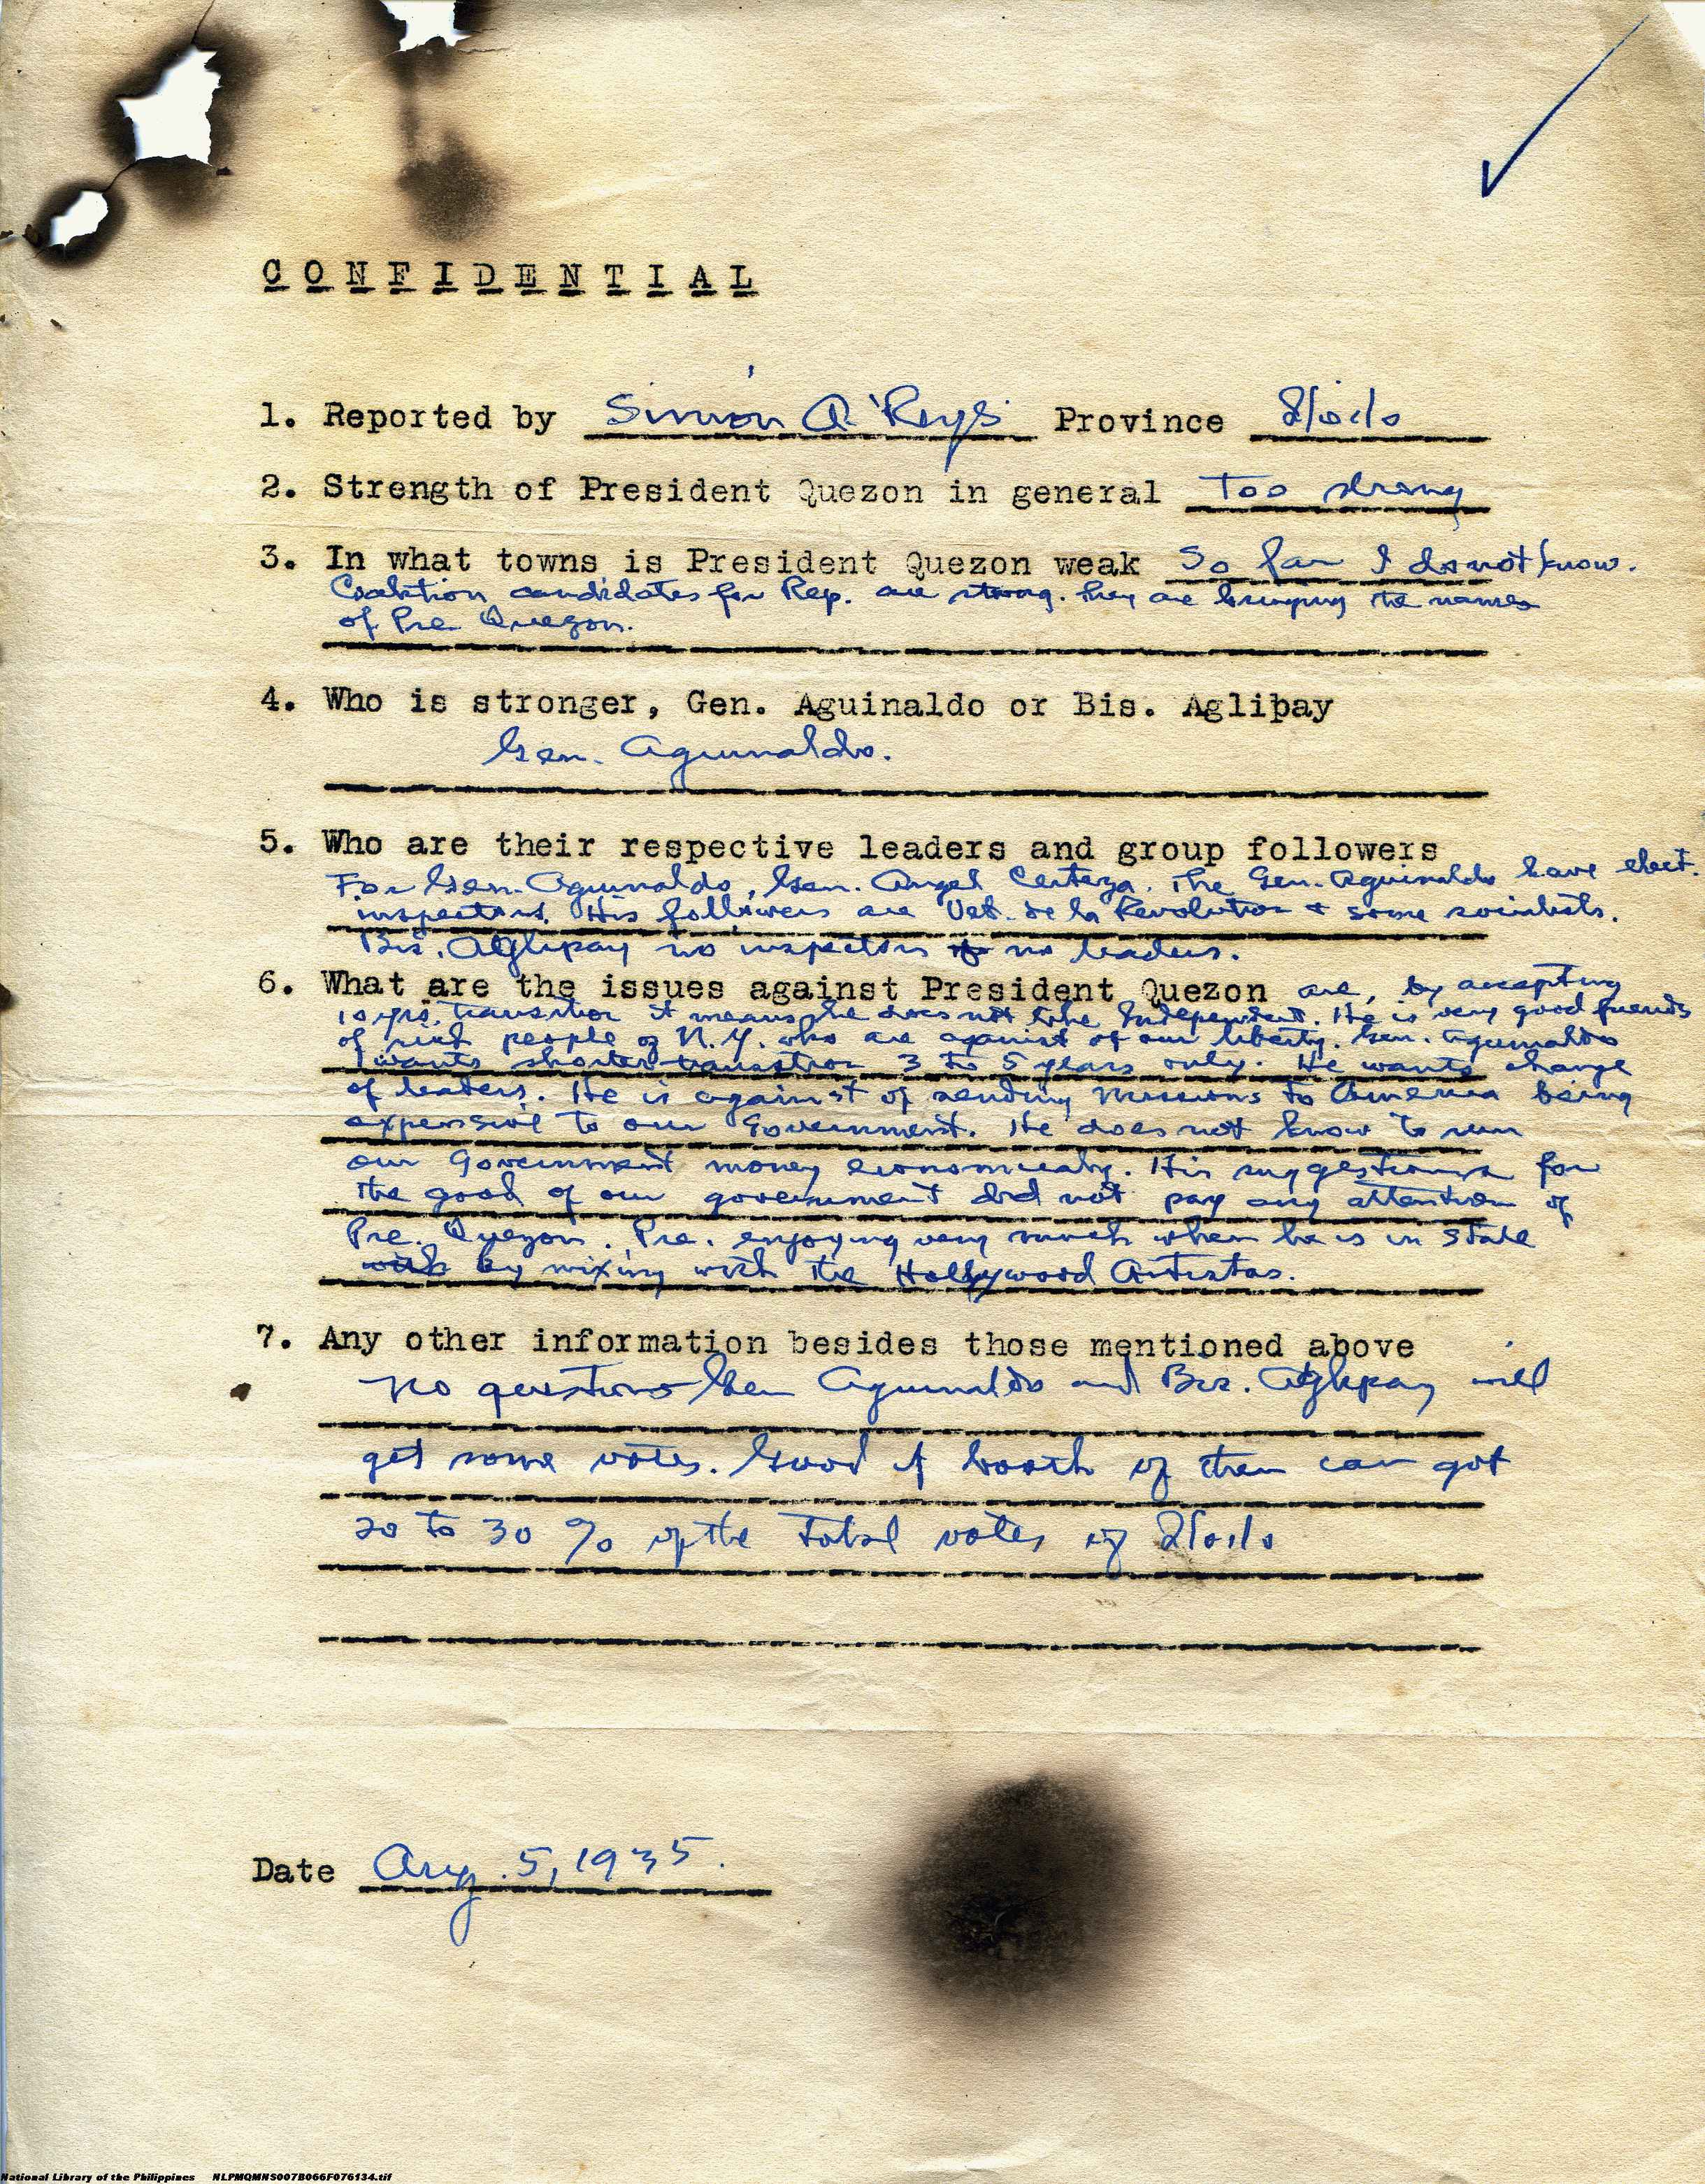 CONFIDENTIAL
1. Reported by Simón A. Reys Province Iloilo
2. Strength of President Quezon in general Too strong
3. In what towns is President Quezon weak So far I do not know.
Coalition candidates for Rep. are strong. They are bringing the names
of Pre Quezon.
4. Who is stronger, Gen. Aguinaldo or Bis. Aglipay
Gen. Aguinaldo.
5. Who are their respective leaders and group followers
For Gen. Aguinaldo, Gen. Angel The Gen. Aguinaldo have elect.
inspectors. His followers are Vet. de la Revolution & some socialists.
Bis. Aglipay no inspectors no leaders.
6. What are the issues against President Quezon are, by accepting
10 yrs, transition it means he does not like Independent. He is very good friends
of rich people of N.Y. who are against of our liberty. Gen. Aguinaldo
wants shorter transition 3 to 5 years only. He wants change
of leaders. He is against of sending missions to America being
expensive to our Government. He does not know to run
our Government money economically. His suggestions for
the good of our government did not pay any attention of
Pre. Quezon. Pre. enjoying very much when he is in State
with by mixing with the Hollywood Artistas.
7. Any other information besides those mentioned above
No questions Gen Aguinaldo and Bis. Aglipay will
get some votes. Good if booth of them can got
20 to 30 % of the total votes of Iloilo
Date Aug. 5, 1935.
National Library of the Philippines NLPMQMNS007B066F076134.tif